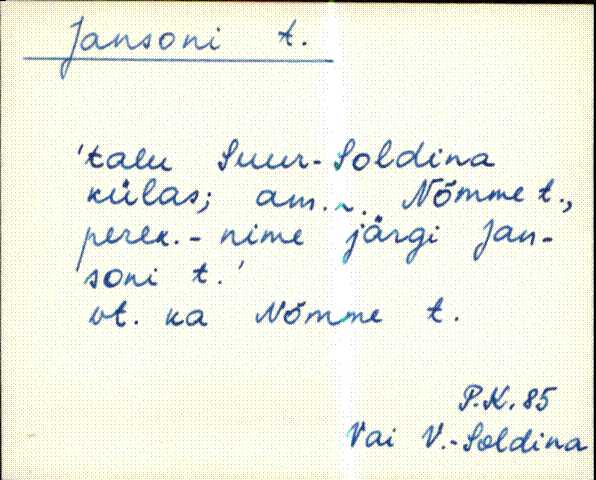 Jansoni t.
'talu Suur-Soldina
külas; am. n. Nõmme t.,
perek.-nime järgi Jan-
soni t.'
vt. ka Nõmme t.
P.K. 85
Vai V.-Soldina